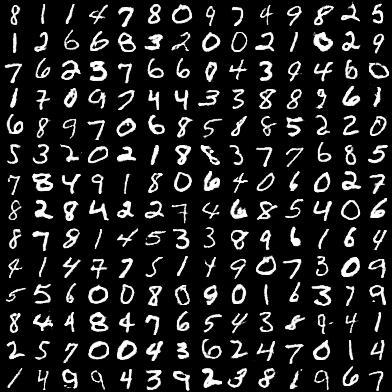 8 1 1 4 7 8 0 9 7 4 9 8 2 5
1 2 6 6 8 3 2 0 0 2 1 0 2 9
7 6 2 3 7 6 6 0 4 3 9 4 6 0
1 7 0 9 7 4 4 3 3 8 8 9 6 1
6 8 9 7 0 6 8 5 8 8 5 2 2 0
5 3 2 0 2 1 8 8 3 7 7 6 8 5
7 8 4 9 1 8 0 6 4 0 6 0 2 7
8 2 8 4 2 2 7 4 6 8 5 4 0 6
8 7 8 1 4 5 3 3 8 9 6 1 6 4
4 1 4 7 7 5 1 4 9 0 7 3 0 9
5 5 6 0 0 8 0 9 0 1 6 3 7 9
8 4 4 8 4 7 6 5 4 3 8 9 4 1
2 5 7 0 0 4 3 6 2 4 7 0 1 4
1 4 9 9 4 3 9 2 3 8 1 9 6 7